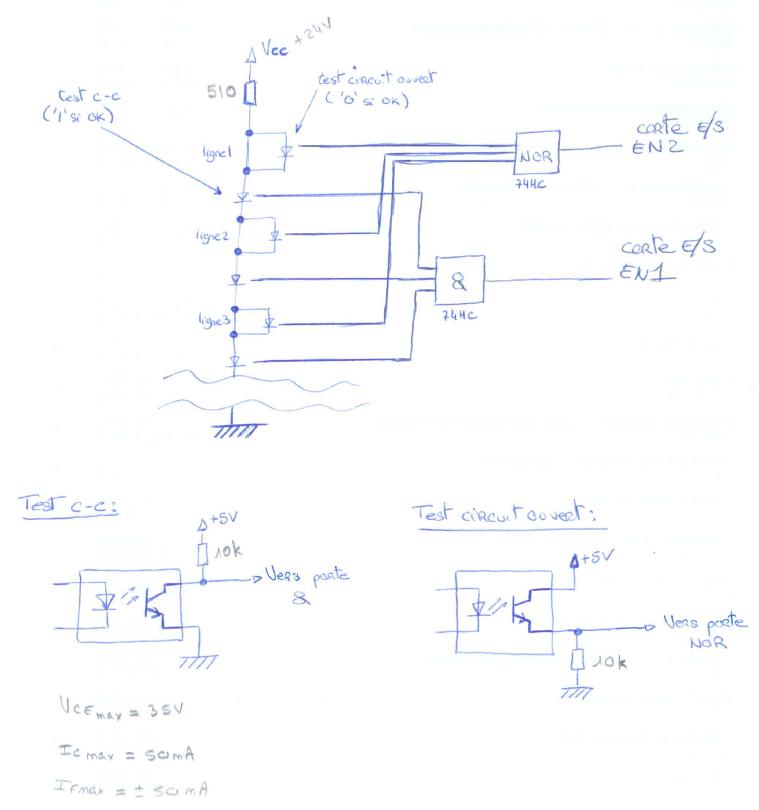 Vcc +24V
510
test circuit ouvert
('0' si OK)
test c-c
('1' si OK)
ligne1
NOR
74HC
carte E/S
EN2
ligne2
carte E/S
EN1
&
74HC
ligne3
Test c-c:
+5V
10k
Vers porte
&
Test circuit ouvert:
+5V
Vers porte
NOR
10k
VCEmax = 35V
Icmax = 50mA
IFmax = ± 50mA